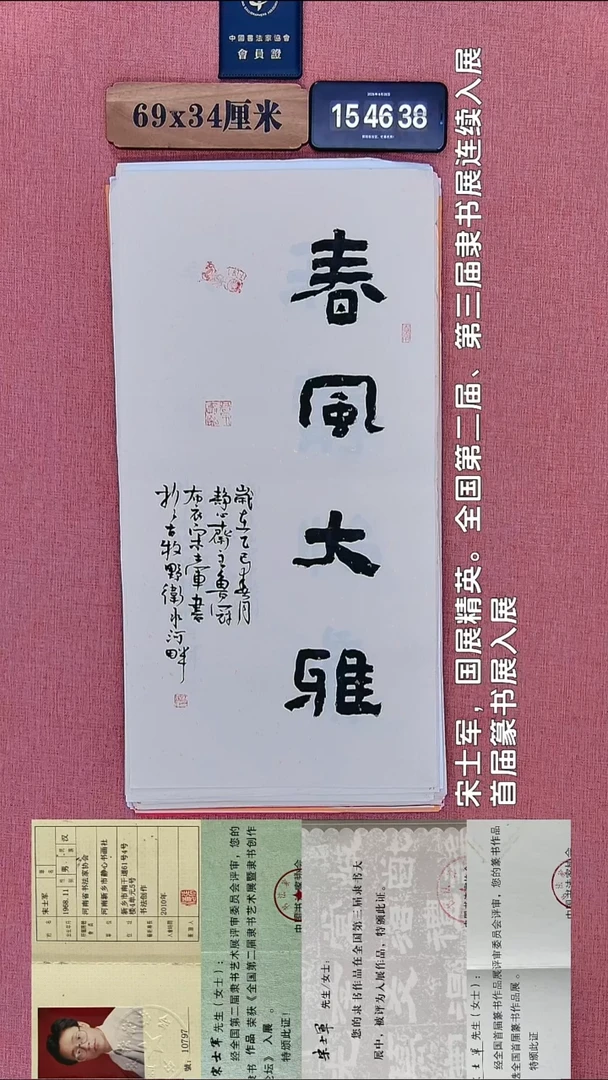 中國書法家協會
會員證
69x34厘米
15 46 38
春風大雅
歲在乙巳春月
靜心齋主魯冠
布衣宋士軍書
於古牧野衛水河畔
宋士军，国展精英。全国第二届、第三届隶书展连续入展
首届篆书展入展
宋士军
1968.11
男
汉
河南省书法家协会
河南新乡市静心书画社
新乡市南干道61号4号
楼4单元5号
书法创作
2010年
號：10797
宋士军 先生（女士）：
经全国第二届隶书艺术展评审委员会评审，您的
隶书 作品 荣获《全国第二届隶书艺术展暨隶书创作
论坛》入展 。
特颁此证！
宋士军 先生/女士：
您的隶书作品在全国第三届隶书大
展中，被评为入展作品，特颁此证。
士军 先生（女士）：
经全国首届篆书作品展评审委员会评审，您的篆书作品
全国首届篆书作品展。
特颁此证